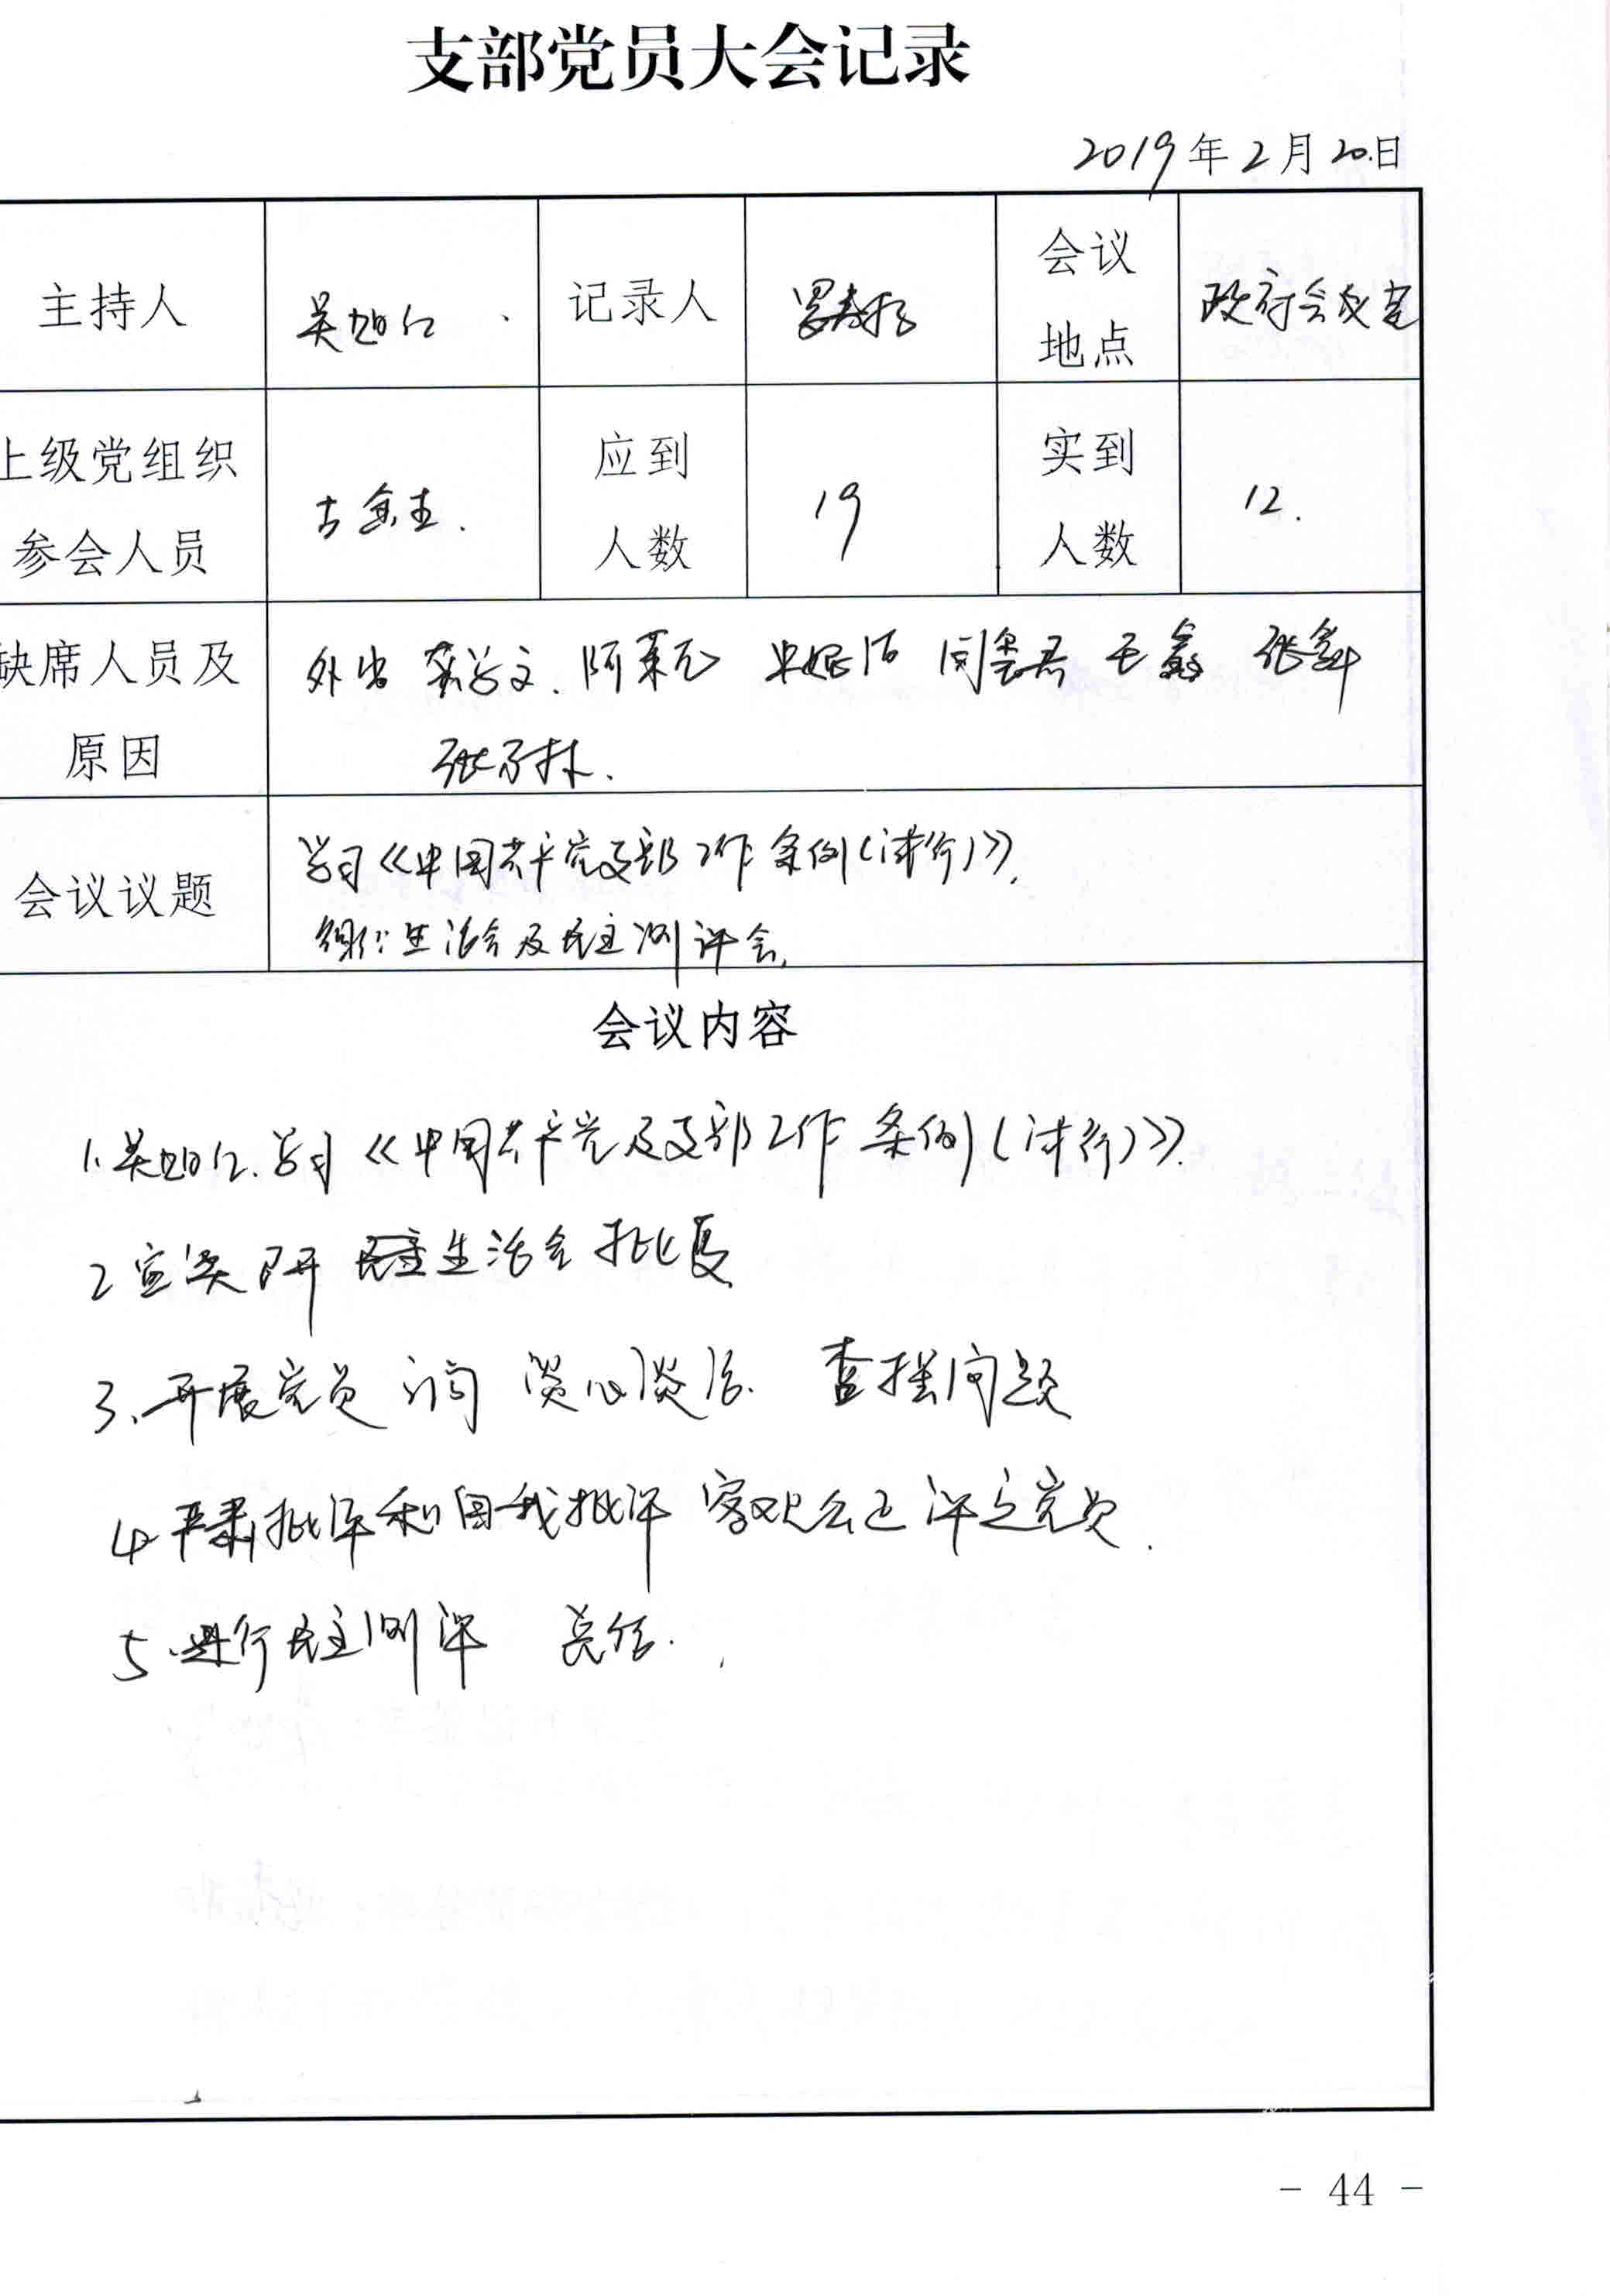 支部党员大会记录
2019年2月20日
主持人 吴旭仁 记录人 会议地点 政府会议室
上级党组织参会人员 古 应到人数 19 实到人数 12.
缺席人员及原因 外出 文. 王鑫 张
张 林.
会议议题 学习《中国共产党支部工作条例(试行)》.
组织生活会及民主测评会.
会议内容
1.吴旭仁.学习《中国共产党及支部工作条例(试行)》.
2 宣读召开民主生活会批复
3.开展党员 谈心谈话. 查摆问题
4 严肃批评和自我批评 客观公正评定党员.
5.进行民主测评 总结.
- 44 -